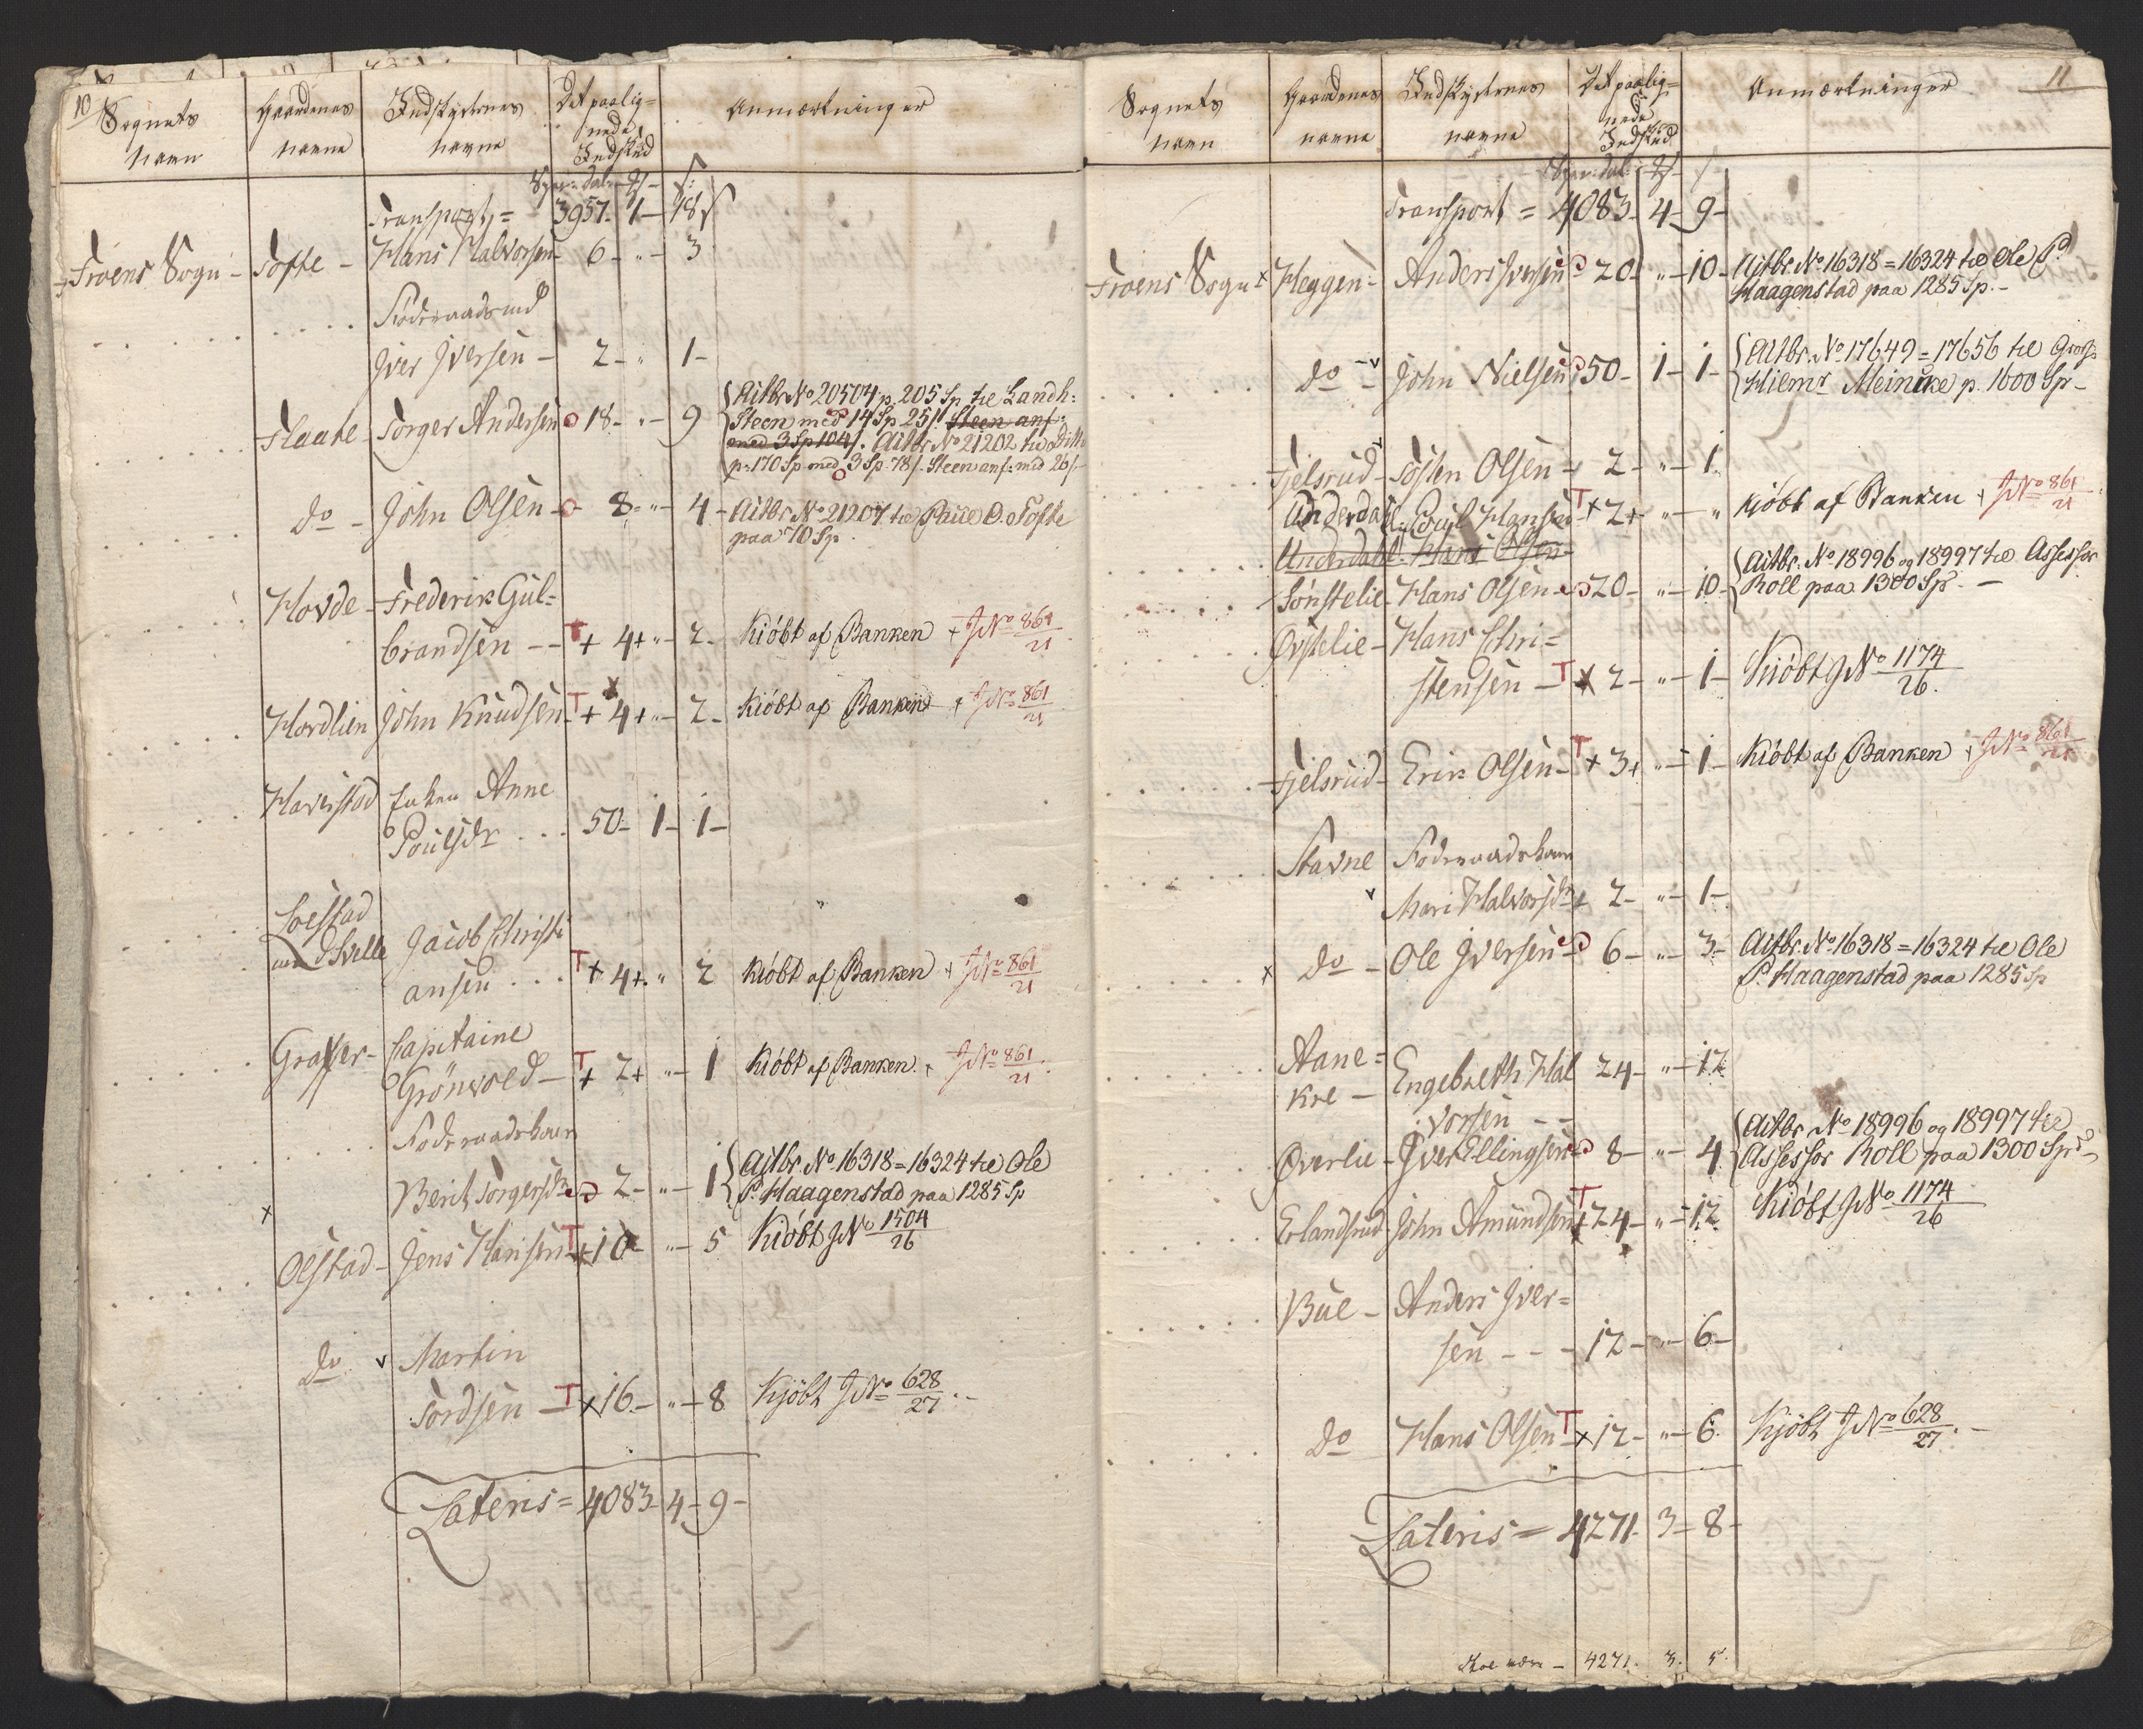 10
Sognets Gaardenes Indskydernes Det paalig= Anmærkninger
navn navne navne nede
Indskud
Spec: Daler ß
Transport = 3957. 1 - 18 ß
Froens Sogn - Tofte - Hans Halvorsen - 6 - " - 3
Føderaadsmd
Iver Iversen - 2 - " 1 -
Flaate - Torger Andersen o 18 - " - 9 Aitbr No 20504 p. 205 Sp til Landh:
Steen med 14 Sp 25 ß. Steen anf:
med 3 Sp 104 ß. Aitbr No 21202 til Ditto
p. 170 Sp med 3 Sp. 78 ß. Steen anf: med 26 ß. -
do - John Olsen - o - 8 - " - 4 - Aitbr No 21207 til Poule O. Tofte
paa 70 Sp.
Hovde - Frederik Gul=
brandsen - - T + 4 + " - 2 - Kiöbt af Banken + J No 861/21
Hordlien John Knudsen - T + 4 + " - 2 - Kiöbt af Banken + J No 861/21
Haverstad Enken Anne
Poulsdr . . . 50 - 1 - 1 -
Loestad
Jacob Christi
ansen . . . T + 4 + . " 2 Kiöbt af Banken + J No 861/21
Graffer - Capitaine
Grönvold - T + 2 + " - 1 Kiöbt af Banken. + J No 861/21.
Føderaadskonen
Berit Torgersdr 2 - " - 1 Aitbr. No 16318 = 16324 til Ole
x P. Haagenstad paa 1285 Sp
Olstad - Jens Hansen - T + 10 - " - 5 Kiöbt J No 1504/26
do v Martin
Tordsen - T x 16 - " - 8 Kjöbt J No 628/27 . -
Lateris = 4083 - 4 - 9 -
11
Sognets Gaardenes Indskydernes Det paalig= Anmærkninger
navn navne navne nede
Indskud
Spec: Dal: ß
Transport = 4083 - 4 - 9 -
Froens Sogn x Heggen - Anders Iversen 20 - " - 10 - Aitbr. No 16318 = 16324 til Ole P.
Haagenstad paa 1285 Sp. -
do - v John Nielsen 50 - 1 - 1 - Aitbr. No 17649 = 17656 til Gross.
Hielmr Meincke p. 1600 Sp -
Fjelsrud - v Tosten Olsen - 2 - " - 1.
Underdahl Poul Hansen T + 2 + " - " Kiöbt af Banken + J No 861/21
Underdahl - Hans Olsen -
Sönstelie - Hans Olsen - 20 - " - 10 - Aitbr. No 18996 og 18997 til Assessor
Roll paa 1300 Sp. -
Øvstelie - Hans Chri=
stensen - T x 2 - " - 1 - Kiöbt J No 1174/26.
Fjelsrud - Erik Olsen - T + 3 + " - 1 - Kiöbt af Banken + J No 861/21
Stavne Føderaadskonen
v Mari Halvorsdr 2 - " - 1 -
x do - Ole Iversen 6 - " - 3 - Aitbr. No 16318 = 16324 til Ole
P. Haagenstad paa 1285 Sp
Aane=
kre - Engebreth Hal 24 - " - 12
vorsen - -
Øverlie - Iver Ellingsen 8 - " - 4 Aitbr. No 18996 og 18997 til
Assessor Roll paa 1300 Sp
Erlandsrud John Amundsen T 24 - " - 12 Kiöbt J No 1174/26
Bue - Anders Iver=
sen - - - 12 - " - 6 -
do Hans Olsen T x 12 - " - 6. Kjöbt J No 628/27 . -
Lateris = 4271 - 3 - 8 -
4271. 3. 5.